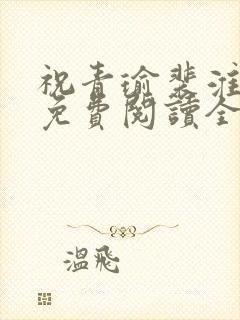 祝青瑜裴淮
免費閱讀全
溫飛